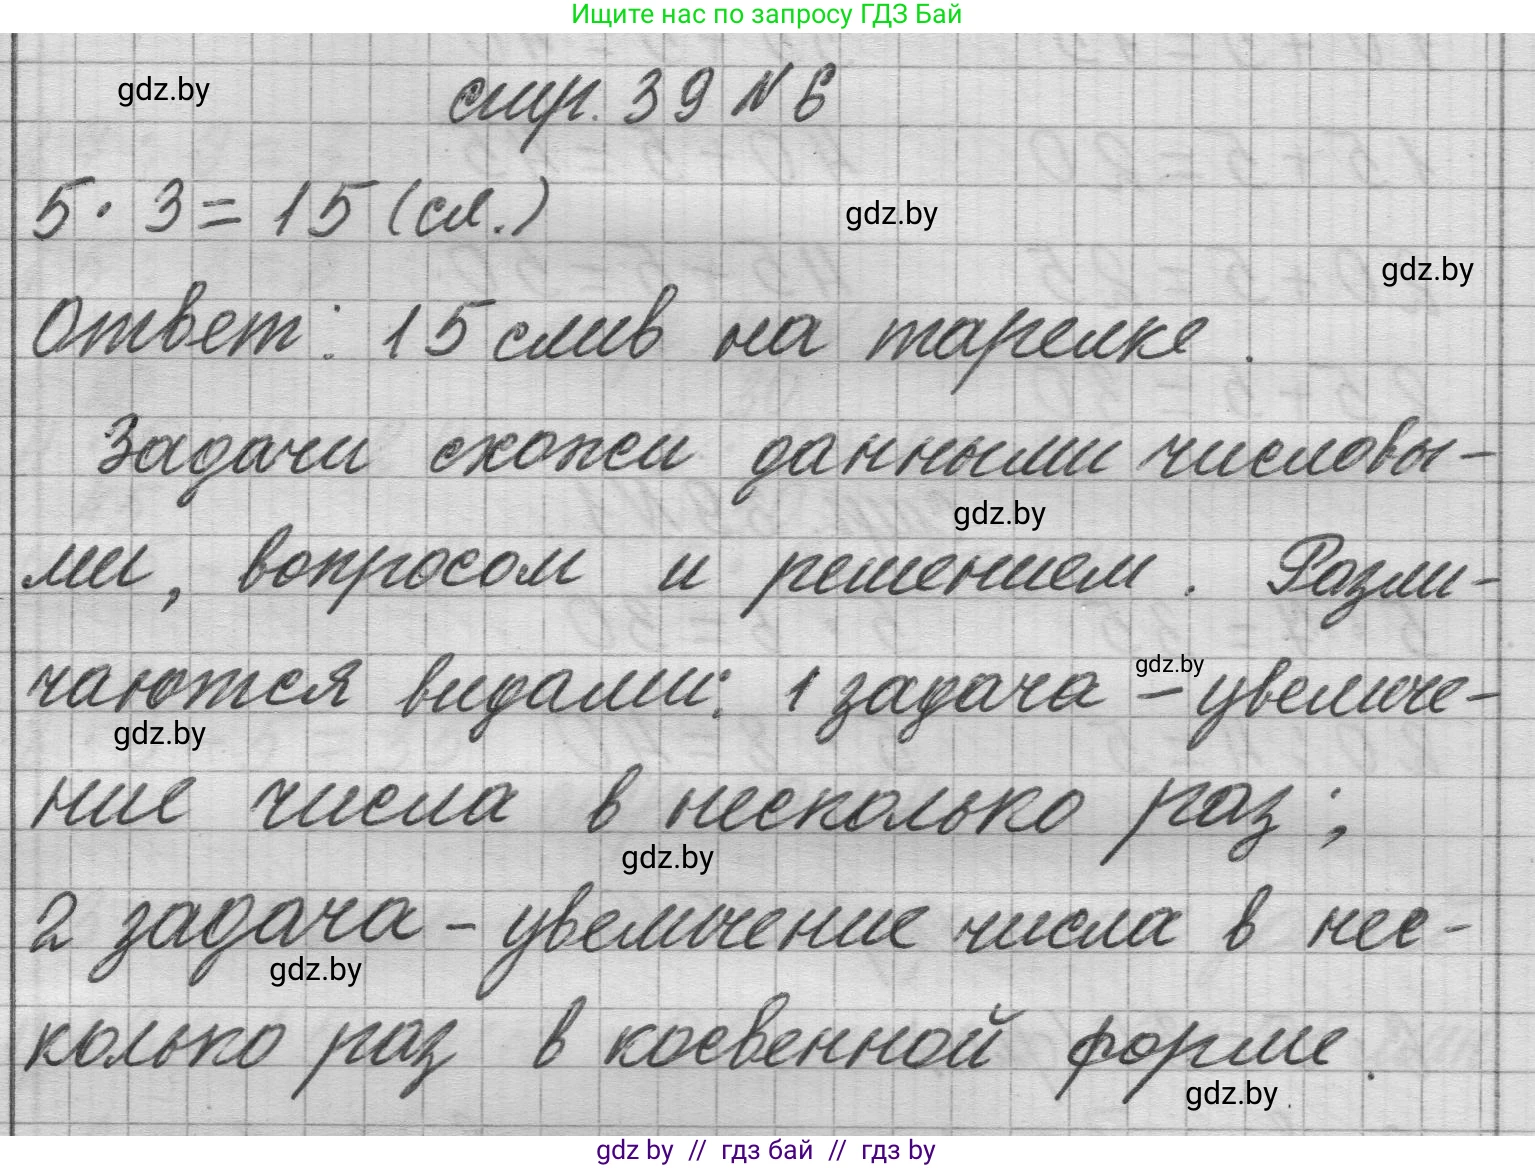 Ищите нас по запросу ГДЗ Бай
gdz.by
стр. 39 № 6
5 · 3 = 15 (сл.)
gdz.by
gdz.by
Ответ: 15 слив на тарелке.
Задачи схожи данными числовы-
gdz.by
ми, вопросом и решением. Разли-
gdz.by
чаются видами: 1 задача – увеличе-
gdz.by
ние числа в несколько раз;
gdz.by
2 задача – увеличение числа в нес-
gdz.by
колько раз в косвенной форме.
gdz.by
gdz by // гдз бай // гдз by